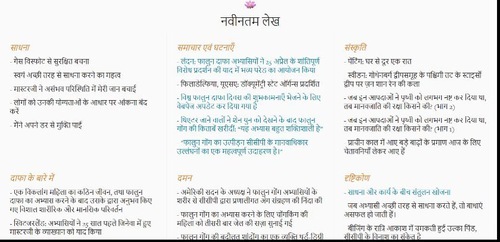 नवीनतम लेख
साधना
- गैस विस्फोट से सुरक्षित बचना
- स्वयं अच्छी तरह से साधना करने का महत्व
- मास्टरजी ने असंभव परिस्थिति में मेरी जान बचाई
- लोगों को उनकी योग्यताओं के आधार पर आंकना बंद करें
- मैंने अपने डर से मुक्ति पाई
समाचार एवं घटनाएँ
- लंदन: फालुन दाफा अभ्यासियों ने 25 अप्रैल के शांतिपूर्ण
विरोध प्रदर्शन की याद में भव्य परेड का आयोजन किया
- फिलाडेल्फिया, यूएसए: डॉक्यूमेंट्री स्टेट ऑर्गन्स प्रदर्शित
- विश्व फालुन दाफा दिवस की शुभकामनाएँ भेजने के लिए
वेबपेज अपडेट कर दिया गया है
- थिएटर जाने वालों ने शेन युन को देखने के बाद फालुन
गोंग की किताबें खरीदीं: "यह अभ्यास बहुत शक्तिशाली है"
- "फालुन गोंग का उत्पीड़न सीसीपी के मानवाधिकार
उल्लंघनों का एक महत्वपूर्ण उदाहरण है।"
संस्कृति
- पेंटिंग: घर से दूर एक रात
- स्वीडन: गोथेनबर्ग द्वीपसमूह के पश्चिमी तट के स्टाइर्सो
द्वीप पर ज़ेन शान रेन की कला
- जब इन आपदाओं ने पृथ्वी को लगभग नष्ट कर दिया था,
तब मानवजाति की रक्षा किसने की? (भाग 2)
- जब इन आपदाओं ने पृथ्वी को लगभग नष्ट कर दिया था,
तब मानवजाति की रक्षा किसने की? (भाग 1)
- प्राचीन काल में आए बड़े बाढ़ों के प्रमाण आज के लिए
चेतावनियाँ लेकर आए हैं
दाफा के बारे में
- एक विकलांग महिला का कठिन जीवन, तथा फालुन
दाफा का अभ्यास करने के बाद उसके द्वारा अनुभव किए
गए विशाल शारीरिक और मानसिक परिवर्तन
- स्विटजरलैंड: अभ्यासियों ने 25 साल पहले जिनेवा में हुए
मास्टरजी के व्याख्यान को याद किया
दमन
- अमेरिकी सदन के अध्यक्ष ने फालुन गोंग अभ्यासियों के
शरीर से सीसीपी द्वारा प्रणालीगत अंग संग्रहण की निंदा की
- फालुन गोंग का अभ्यास करने के लिए चोंगकिंग की
महिला को तीसरी बार जेल की सज़ा सुनाई गई
- फालुन गोंग की बदौलत शांदोंग का एक व्यक्ति
दृष्टिकोण
- साधना और कार्य के बीच संतुलन खोजना
- जब अभ्यासी अच्छी तरह से साधना करते हैं, तो बाधाएं
असफल हो जाती हैं।
- बीजिंग के रात्रि आकाश में चमकती हुई उल्का पिंड,
सीसीपी के विनाश का संकेत है